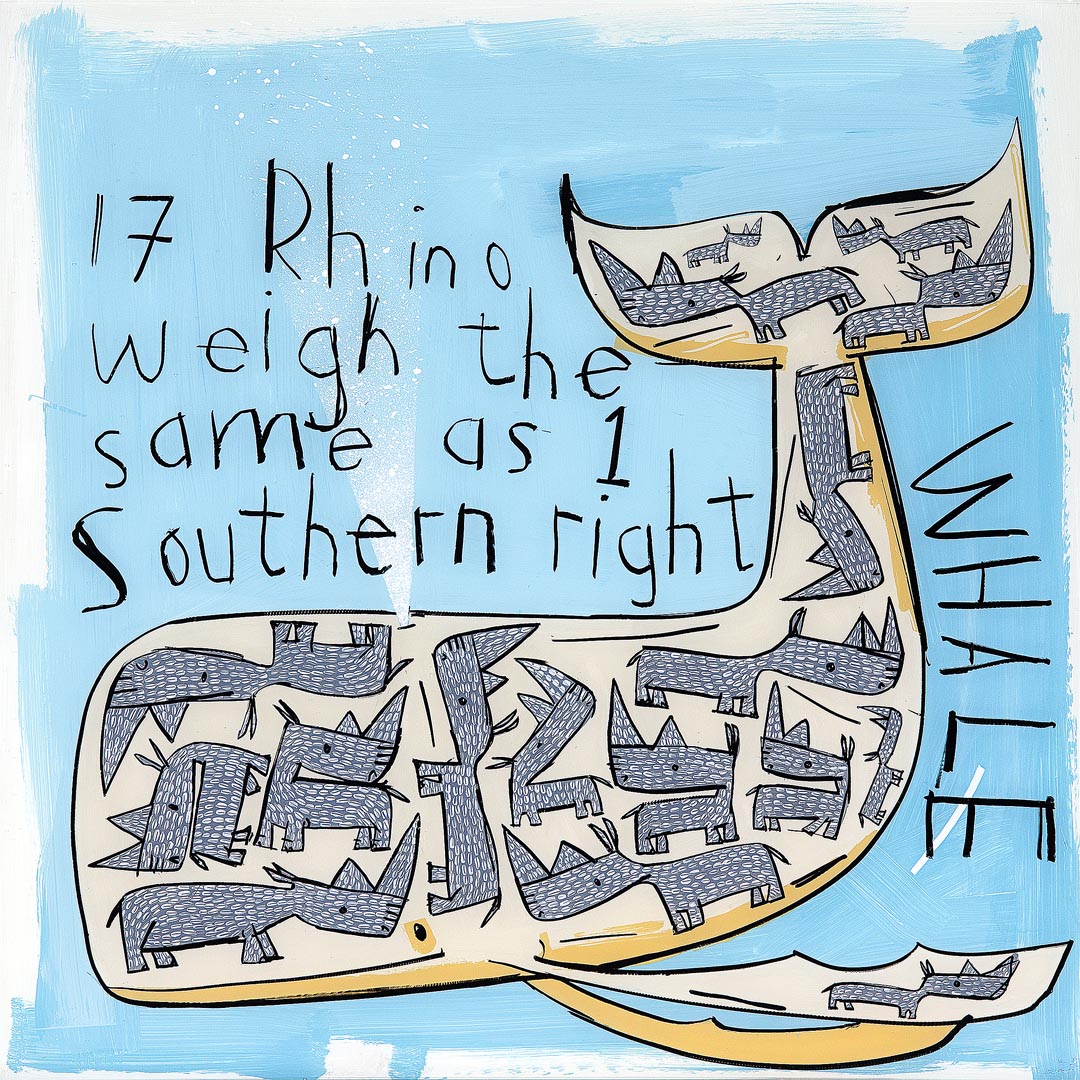 17 Rhino
weigh the
same as 1
Southern right
WHALE